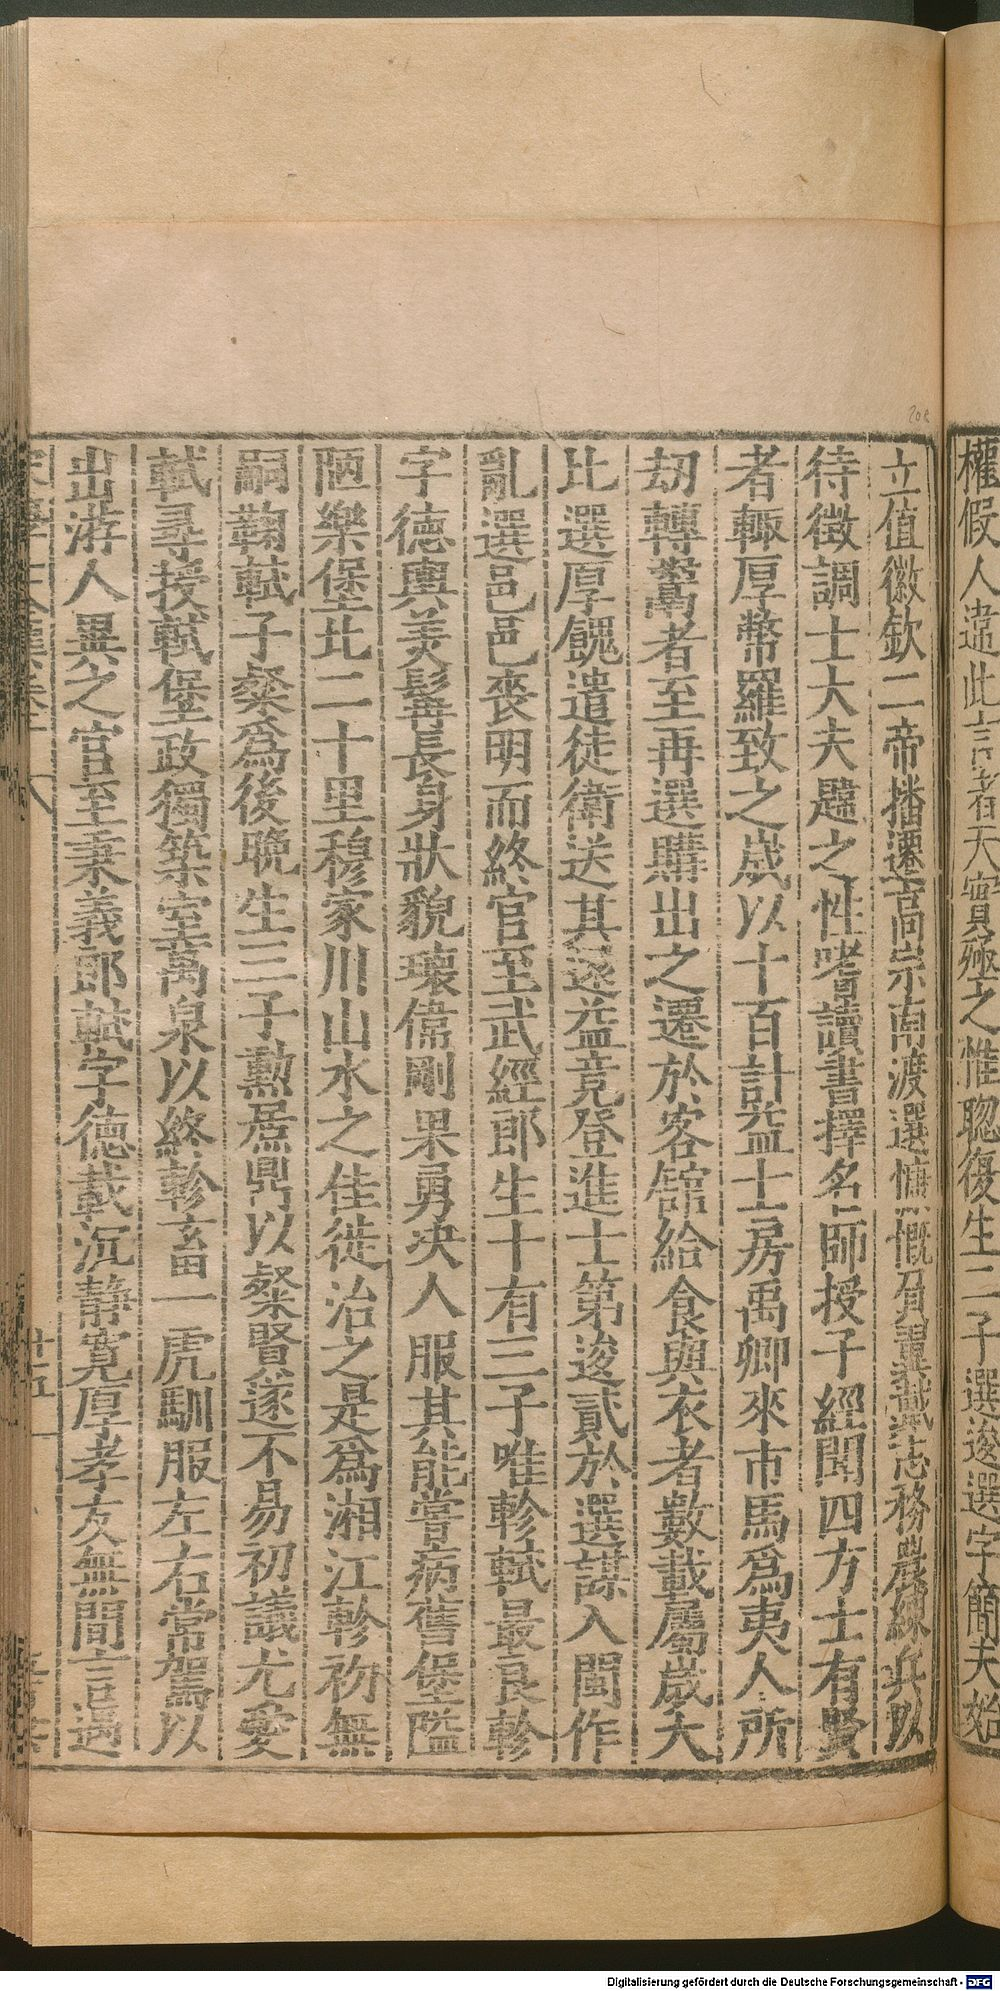 權假人違此言者天實殛之惟聦復生二子選逡選字簡夫始
立值徽欽二帝播遷高宗南渡選慷慨負翼戴志務農練兵以
待徵調士大夫韙之性嗜讀書擇名師授子經聞四方士有賢
者輒厚幣羅致之歲以十百計益士房禹卿來市馬爲夷人所
刼轉鬻者至再選購出之遷於客舘給食與衣者數載屬歲大
比選厚餽遣徒衛送其還益竟登進士第逡貳於選謀入閩作
亂選邑邑喪明而終官至武經郎生十有三子唯軫軾最良軫
字德輿美髯長身狀貌瓌偉剛果勇决人服其能嘗病舊堡隘
陋樂堡北二十里穆家川山水之佳徙治之是爲湘江軫初無
嗣鞠軾子粲爲後晚生三子勲烝鼎以粲賢遂不易初議尤愛
軾尋授軾堡政獨築室萬泉以終軫畜一虎馴服左右常駕以
出游人異之官至秉義郎軾字德載沉靜寬厚孝友無間言遇